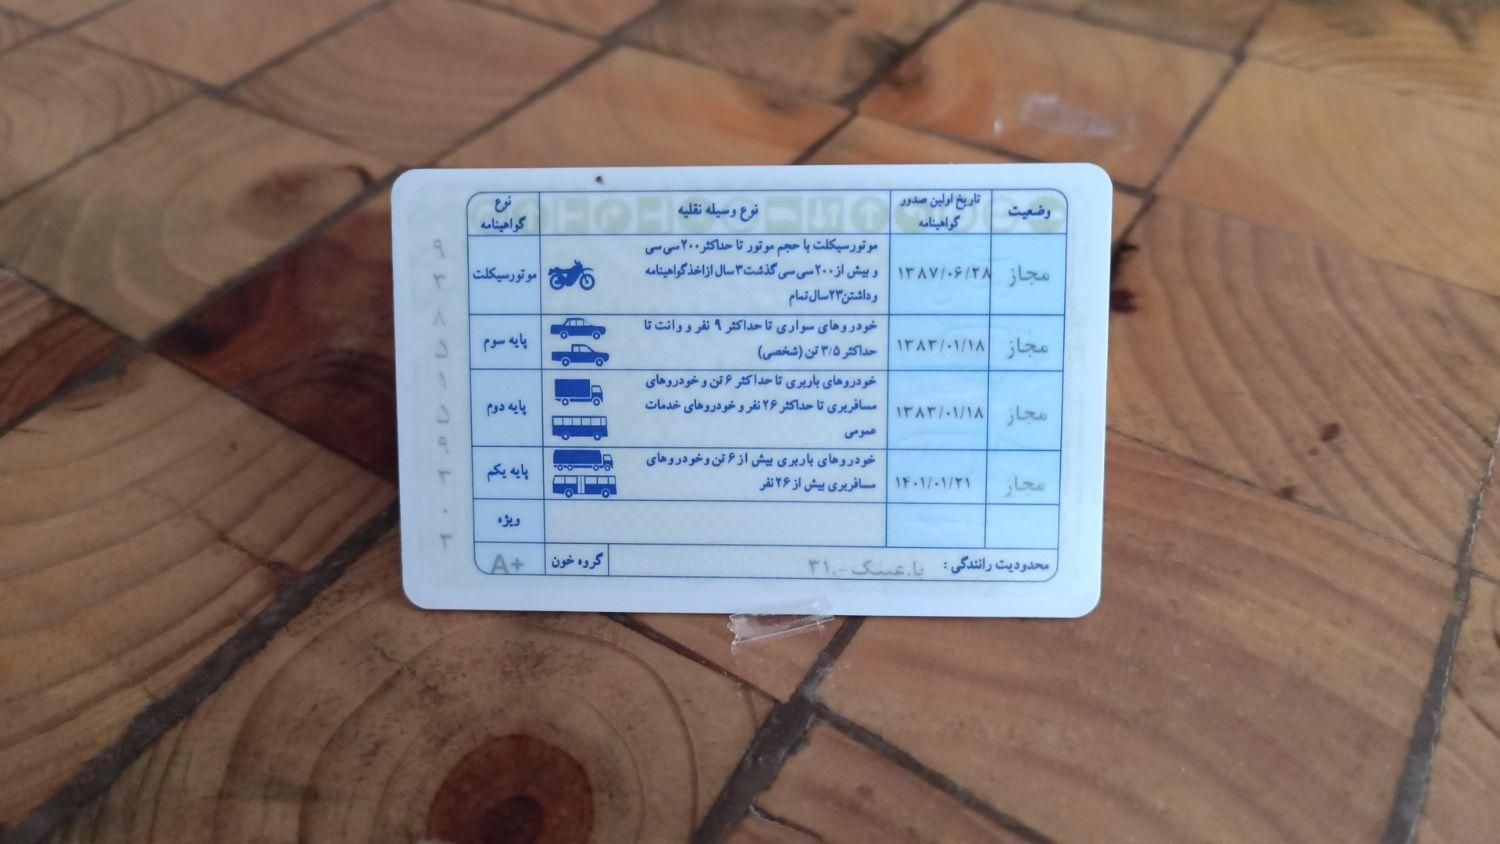 وضعیت تاریخ اولین صدور گواهینامه نوع وسیله نقلیه نوع گواهینامه
مجاز ۱۳۸۷/۰۶/۲۸ موتورسیکلت با حجم موتور تا حداکثر ۲۰۰ سی سی موتورسیکلت
و بیش از ۲۰۰ سی سی گذشت ۳ سال از اخذ گواهینامه
و داشتن ۲۳ سال تمام
مجاز ۱۳۸۳/۰۱/۱۸ خودروهای سواری تا حداکثر ۹ نفر و وانت تا پایه سوم
حداکثر ۳/۵ تن (شخصی)
مجاز ۱۳۸۳/۰۱/۱۸ خودروهای باربری تا حداکثر ۶ تن و خودروهای پایه دوم
مسافربری تا حداکثر ۲۶ نفر و خودروهای خدمات
عمومی
مجاز ۱۴۰۱/۰۱/۲۱ خودروهای باربری بیش از ۶ تن و خودروهای پایه یکم
مسافربری بیش از ۲۶ نفر
ویژه
محدودیت رانندگی : با.عینک -.۳۱ گروه خون A+
۹
۳
۸
۵
۱
۵
۹
۳
۰
۳